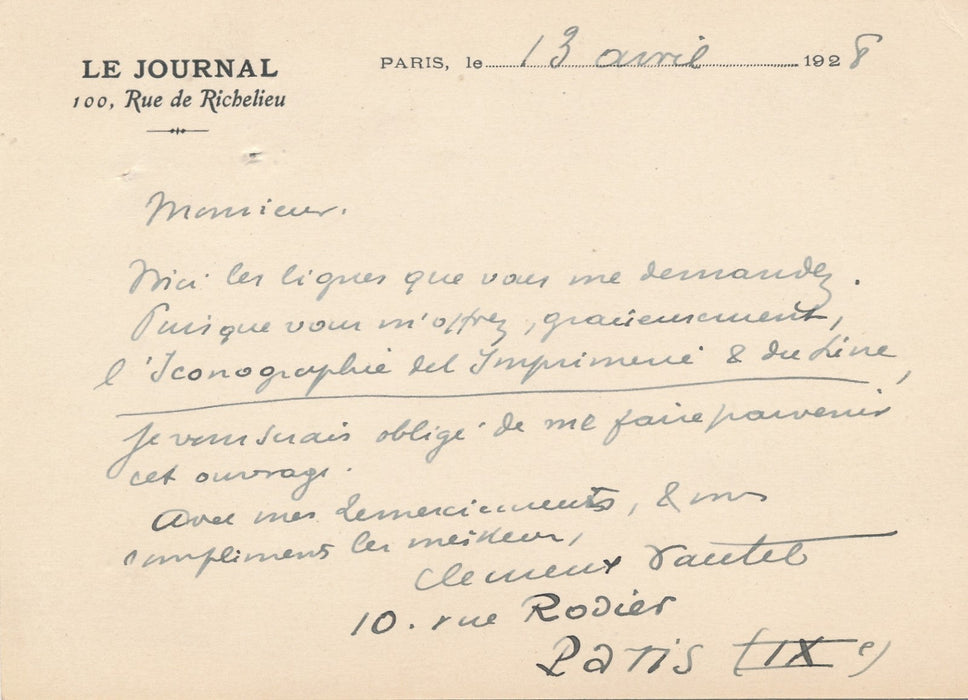 LE JOURNAL
100, Rue de Richelieu
PARIS, le 13 avril 1928
Monsieur.
Voici les lignes que vous me demandez.
Puisque vous m'offrez, gracieusement,
l'Iconographie de l'Imprimerie & du Livre,
je vous serais obligé de me faire parvenir
cet ouvrage.
Avec mes remerciements, & mes
compliments les meilleurs,
Clement Vautel
10. rue Rodier
Paris (IXe)